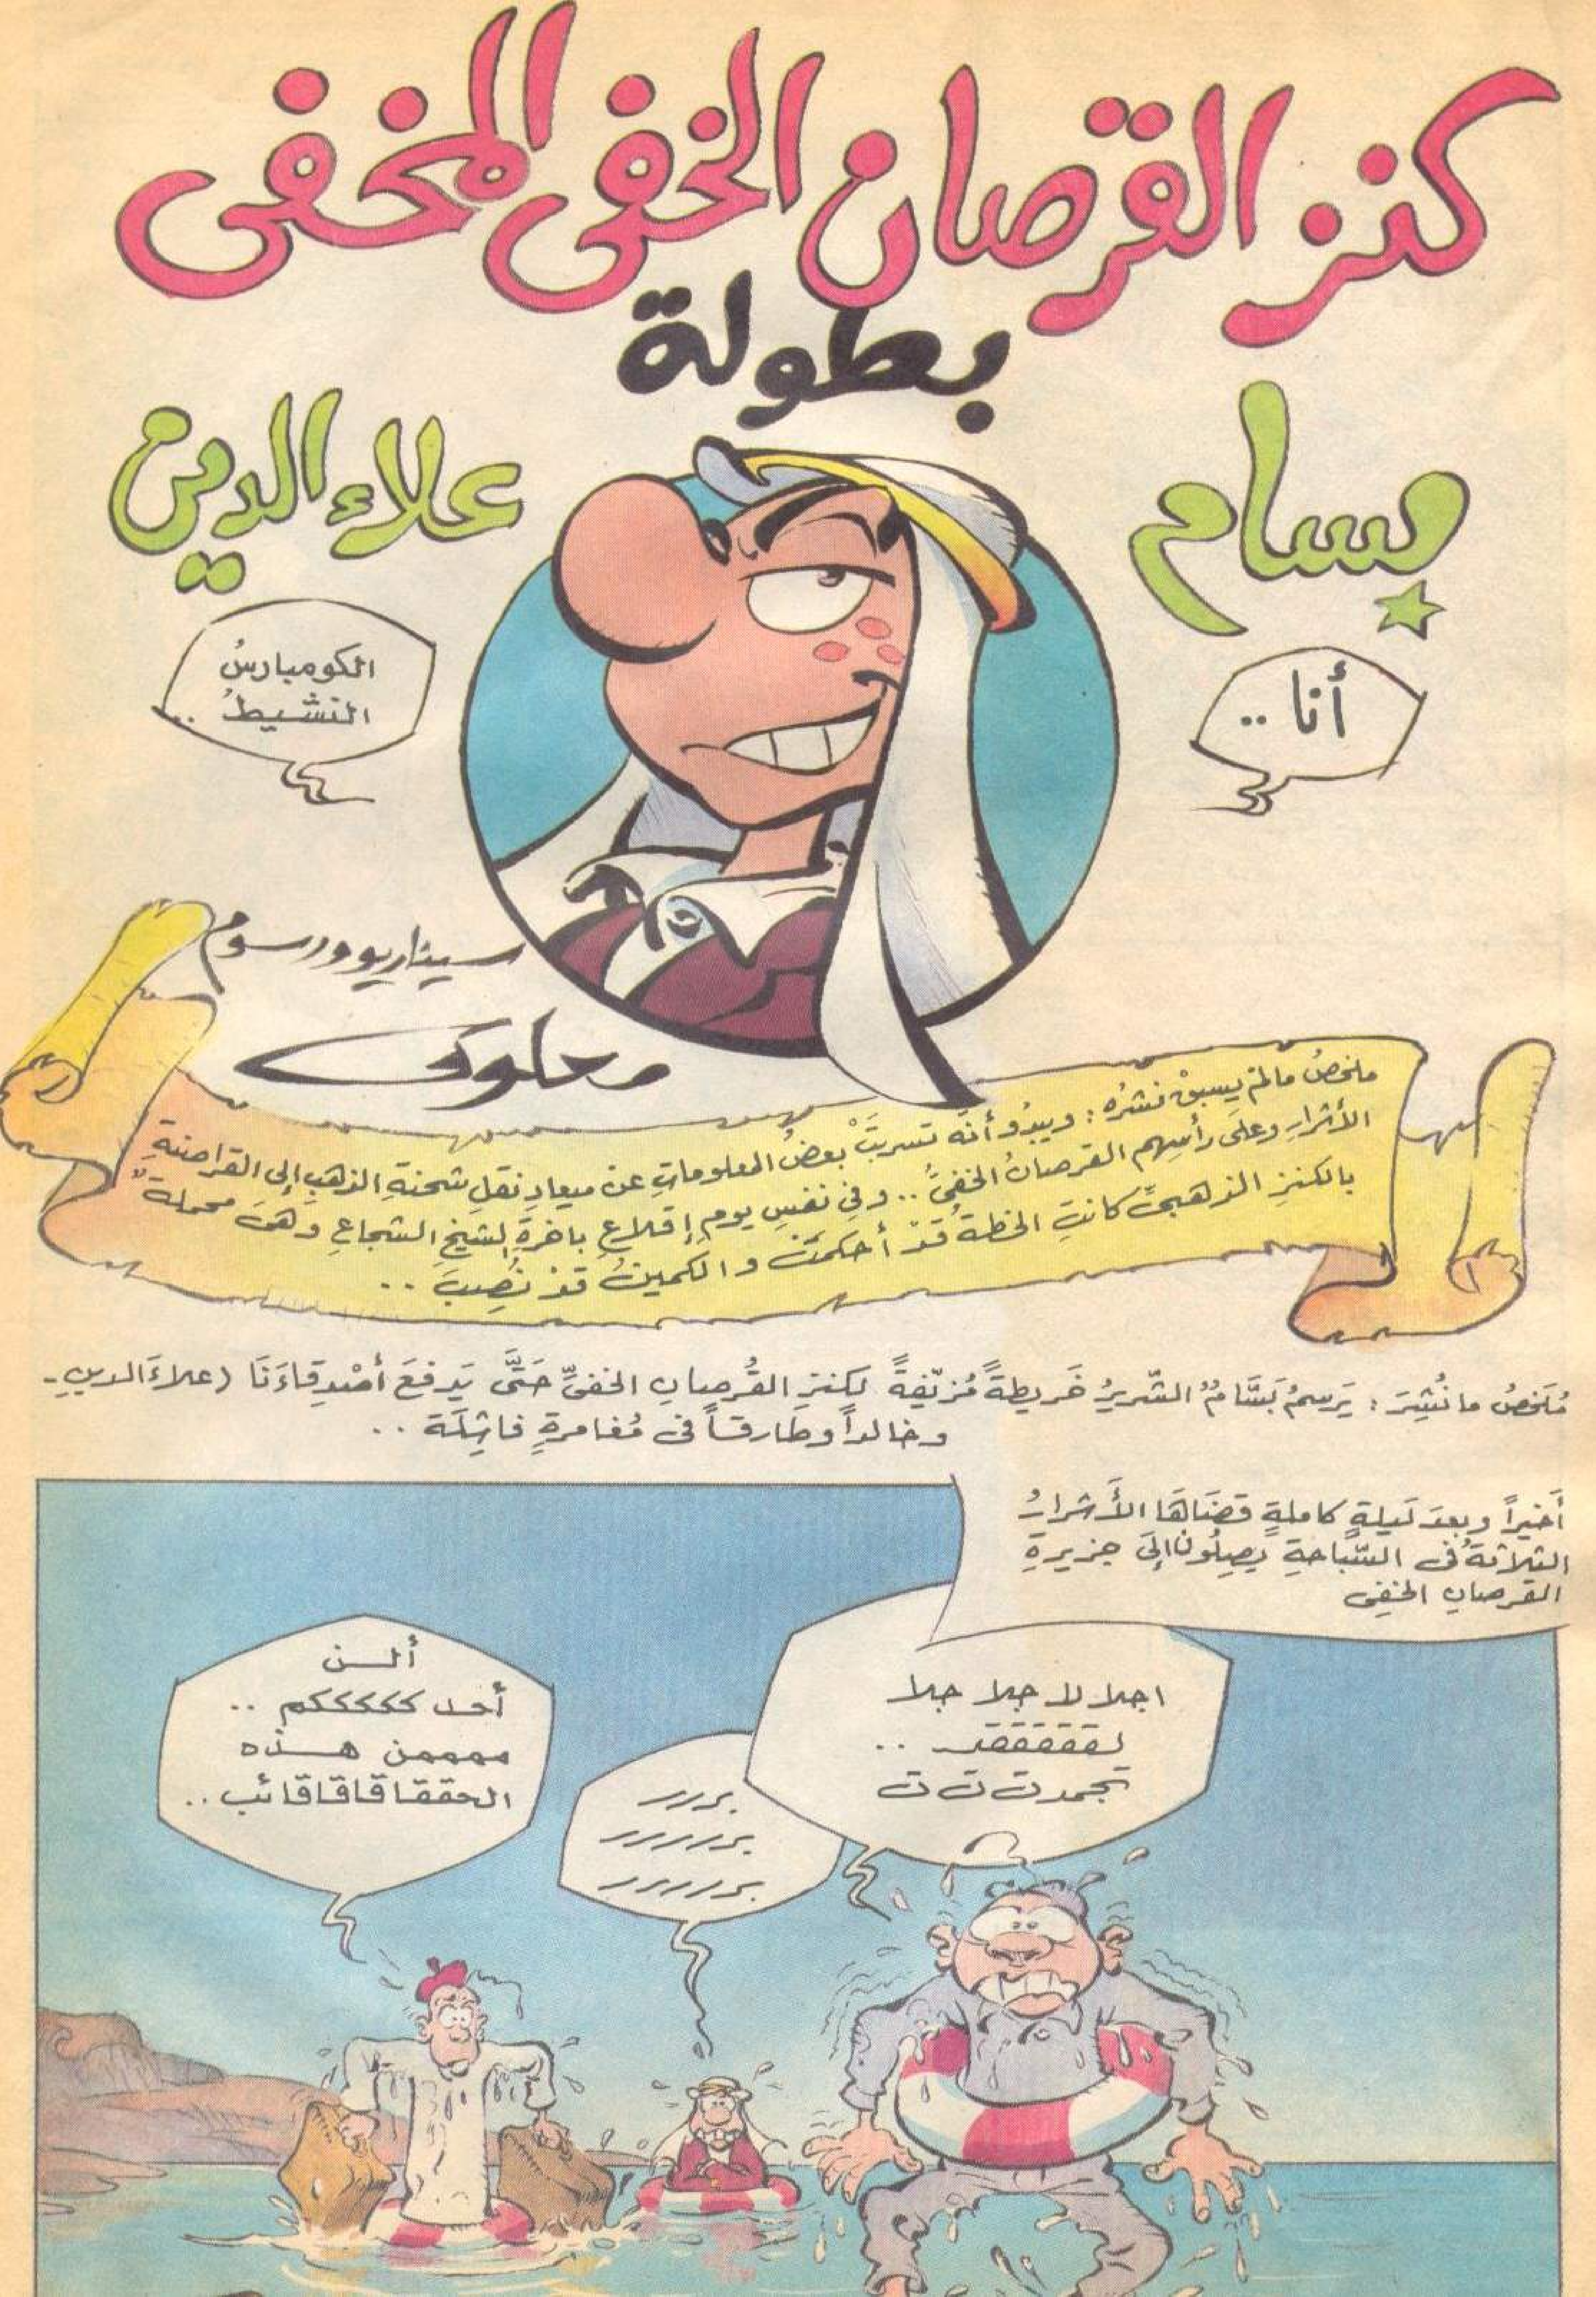 كنز القرصان الخفى المخفى
بطولة
بسام
علاء الدين
أنا ..
الكومبارسُ
النشيطُ ..
سيناريو ورسوم
معلوف
ملخصُ مالمْ يسبقْ نشرُه : ويبدُو أنَّه تسربَتْ بعضُ المعلوماتِ عنْ ميعادِ نقلِ شحنةِ الذهبِ إلى القراصنةِ
الأشرارِ وعلَى رأسِهم القرصانُ الخفىُّ .. وفى نفسِ يومِ إقلاعِ باخرةِ الشيخِ الشجاعِ وهىَ محملةٌ
بالكنزِ الذهبىِّ كانتِ الخطةُ قدْ أحكمَتْ والكمينُ قدْ نُصِبَ ..
مُلَخصُ ما نُشِرَ : يَرسِمُ بَسَّامُ الشّريرُ خَريطةً مُزيّفةً لكنزِ القُرصانِ الخفىِّ حَتَّى يَدفعَ أصْدِقاءَنَا (علاءَالدينِ-
وخالداً وطارقاً فى مُغامرةٍ فاشِلَة ..
أَخيراً وبعدَ لَيلةٍ كاملةٍ قضَاهَا الأَشرارُ
الثلاثةُ فى السّباحةِ يَصِلُونَ إلَى جزيرةِ
القرصانِ الخفِى
اجلا لا جلا جلا
لقققققد ..
تجمدت ت ت
بررر
بررررر
بررررر
ألــن
أحد ككككككم ..
ممممن هــذه
الحققاقاقاقائب ..